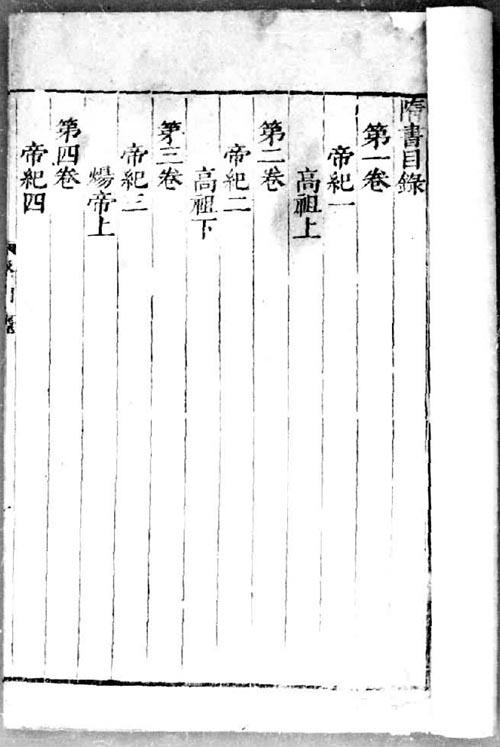 隋書目錄
第一卷
帝紀一
高祖上
第二卷
帝紀二
高祖下
第三卷
帝紀三
煬帝上
第四卷
帝紀四